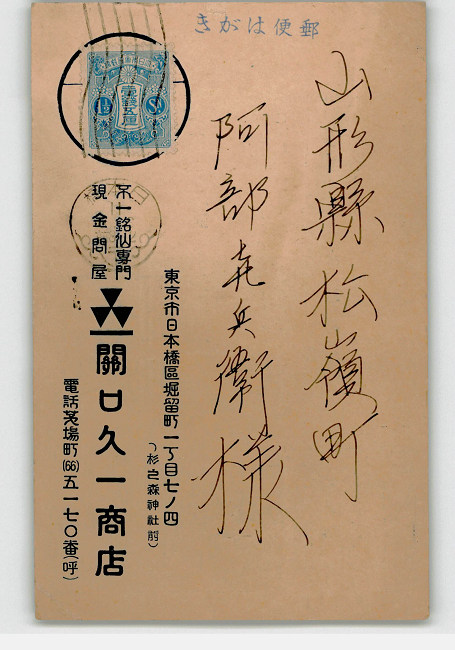 きがは便郵
山形縣松嶺町
阿部㐂兵衛様
壹錢五厘
1½ Sn
不一銘仙專門
現金問屋
東京市日本橋區堀留町一丁目七ノ四
(杉之森神社前)
關口久一商店
電話茅場町(66)五一七〇番(呼)